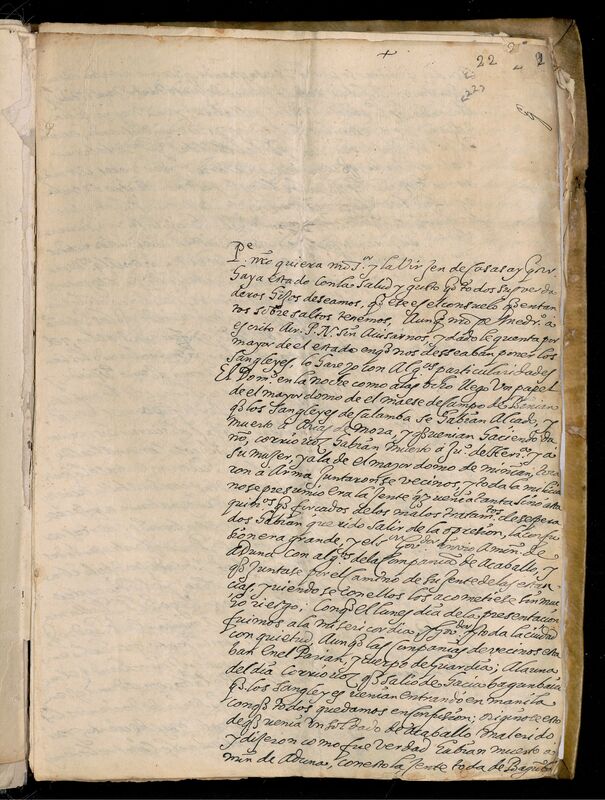 +
22
P.e nro quiera nro S.or y la Virgen de
aya estado con la salud y gusto q todos sus verda
deros hijos deseamos, q este es el consuelo q en tan
tos sobresaltos tenemos, Aunq nro pe a
escrito A vr. P. N. sin Avisarnos, y dadole quenta por
mayor de el estado en q nos desseaban poner los
sangleyes, lo harè yo con Alg.as particularidades
El Dom.o en la noche como a las ocho llego Un papel
de el mayordomo de el maese de campo de Binian
q los sangleyes de Calamba se habian Alçado, y
muerto a Arias de Mora, y q venian haciendo da
ño, corrio voz habian muerto a Ju. de Herr.a y a
su muger, y a la de el mayordomo de
ron a Arma juntaronse vecinos, y toda la milicia
no se presumio era la gente q venia tanta sino
q forçados de los malos tratam.tos desespera
dos habian querido salir de la opresion, la confu
sion era grande, y el Gov.or Amin de
Aduna con alg.os de la compañia de Acaballo, y
q juntase por el camino de la gente de las estan
cias, y viendose con ellos los acometiese sin mu
cho riesgo; Conq el lunes dia de la presentacion
fuimos a la misericordia, y Gov.or y toda la ciudad
con quietud, Aunq las compañias de vecinos esta
ban en el Parian, y cuerpo de guardia; A la una
del dia corrio voz q salio de hacia bagunbaia
q los sangleyes venian entrando en manila
conq todos quedamos en confusion; originose esto
de q venia un soldado de Acaballo mal erido
y dijeron como fue verdad habian muerto a
min de Aduna, con esto la gente toda de